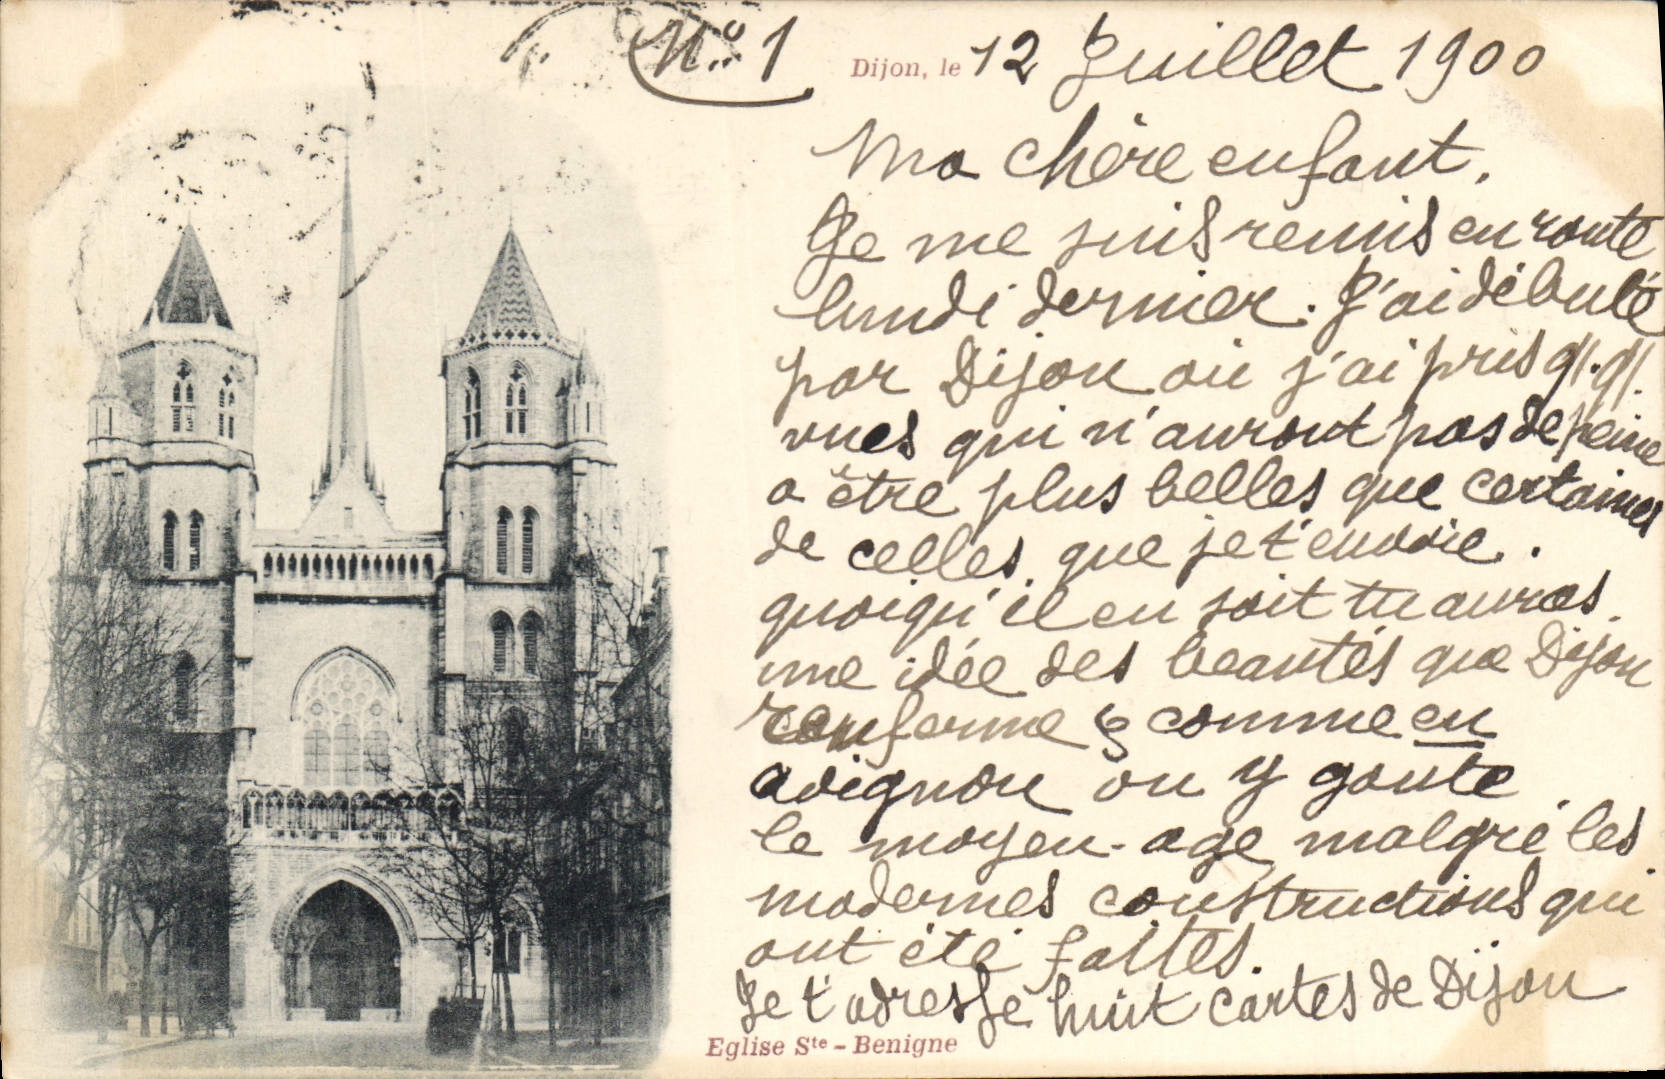 N° 1
Dijon, le 12 Juillet 1900
Ma chère enfant.
Je me suis remis en route
lundi dernier. J'ai débuté
par Dijon où j'ai pris qq. qq.
vues qui n'auront pas de peine
a être plus belles que certaines
de celles que je t'envoie.
quoiqu'il en soit tu auras
une idée des beautés que Dijon
renferme & comme en
avignon on y goute
le moyen-age malgré les
modernes constructions qui
ont été faites.
Je t'adresse huit cartes de Dijon
Eglise Ste - Benigne